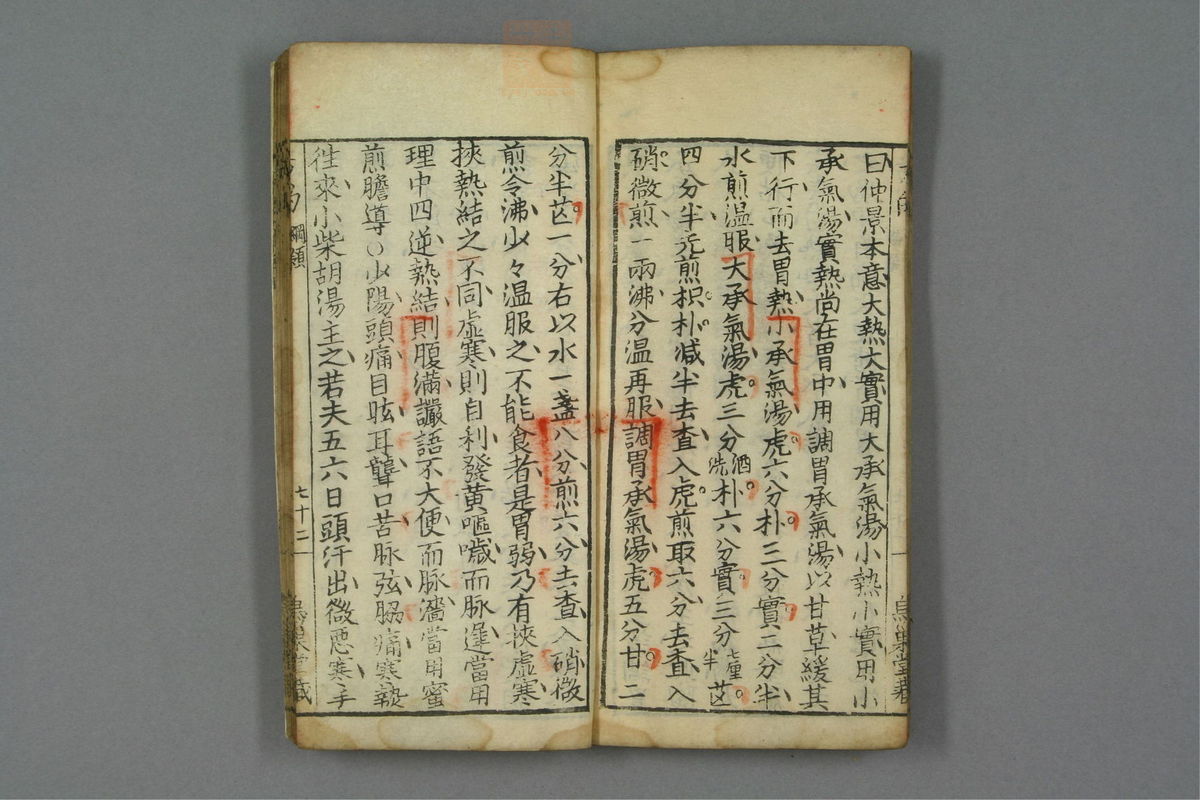 曰仲景本意大熱大實用大承氣湯小熱小實用小
承氣湯實熱尚在胃中用調胃承氣湯以甘草緩其
下行而去胃熱小承氣湯虎六分朴三分實二分半
水煎温服大承氣湯虎三分酒洗朴六分實三分七厘半芒
四分半先煎枳朴减半去査入虎煎取六分去査入
硝微煎一兩沸分温再服調胃承氣湯虎五分甘二
分半芒一分右以水一盞八分煎六分去査入硝微
煎令沸少々温服之不能食者是胃弱乃有挾虚寒
挾熱結之不同虚寒則自利發黄嘔噦而脉遲當用
理中四逆熱結則腹滿讝語不大便而脉濇當用蜜
煎膽導○少陽頭痛目眩耳聾口苦脉弦脇痛寒熱
徃來小柴胡湯主之若夫五六日頭汗出微惡寒手
綱領
七十二